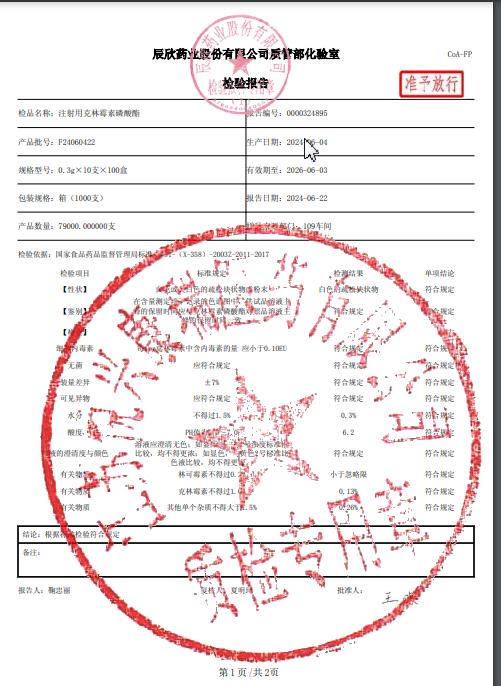 辰欣药业股份有限公司质管部化验室
CoA-FP
检验报告
准予放行
检品名称：注射用克林霉素磷酸酯
报告编号：0000324895
产品批号：F24060422
生产日期：2024-06-04
规格型号：0.3g×10支×100盒
有效期至：2026-06-03
包装规格：箱（1000支）
报告日期：2024-06-22
产品数量：79000.000000支
109车间
检验依据：国家食品药品监督管理局标准 (X-358)-2003Z-2011-2017
检验项目 标准规定 检测结果 单项结论
【性状】 白色的疏松块状物或粉末 白色的疏松块状物 符合规定
【鉴别】 在含量测定项下记录的色谱图中，供试品溶液主 符合规定 符合规定
峰的保留时间应与克林霉素磷酸酯对照品溶液主
细菌内毒素 克林霉素中含内毒素的量 应小于0.10EU 符合规定 符合规定
无菌 应符合规定 符合规定 符合规定
装量差异 ±7% 符合规定 符合规定
可见异物 应符合规定 符合规定 符合规定
水分 不得过1.5% 0.3% 符合规定
酸度 6.2 符合规定
溶液应澄清无色；如显
溶液的澄清度与颜色 比较，均不得更浓；如显色，黄色2号标准比 符合规定 符合规定
色液比较，均不得更
有关物质 林可霉素不得过0. 小于忽略限 符合规定
有关物质 克林霉素不得过1. 0.13% 符合规定
有关物质 其他单个杂质不得大于 .5% 0.26% 符合规定
结论：根据 检验符合规定
备注：
报告人：鞠忠丽
复核人：夏明
批准人：
第1页/共2页